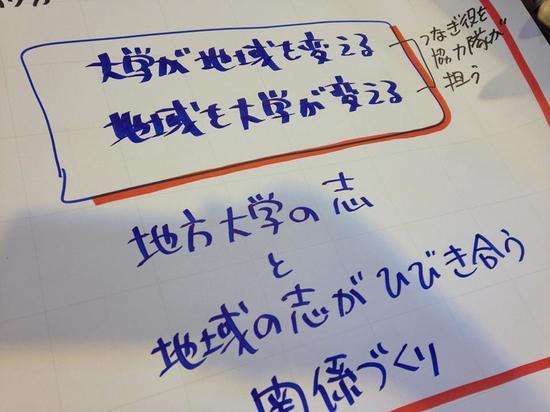 大学が地域を変える
地域を大学が変える
つなぎ役を
協力隊が
担う
地方大学の志
と
地域の志がひびき合う
関係づくり